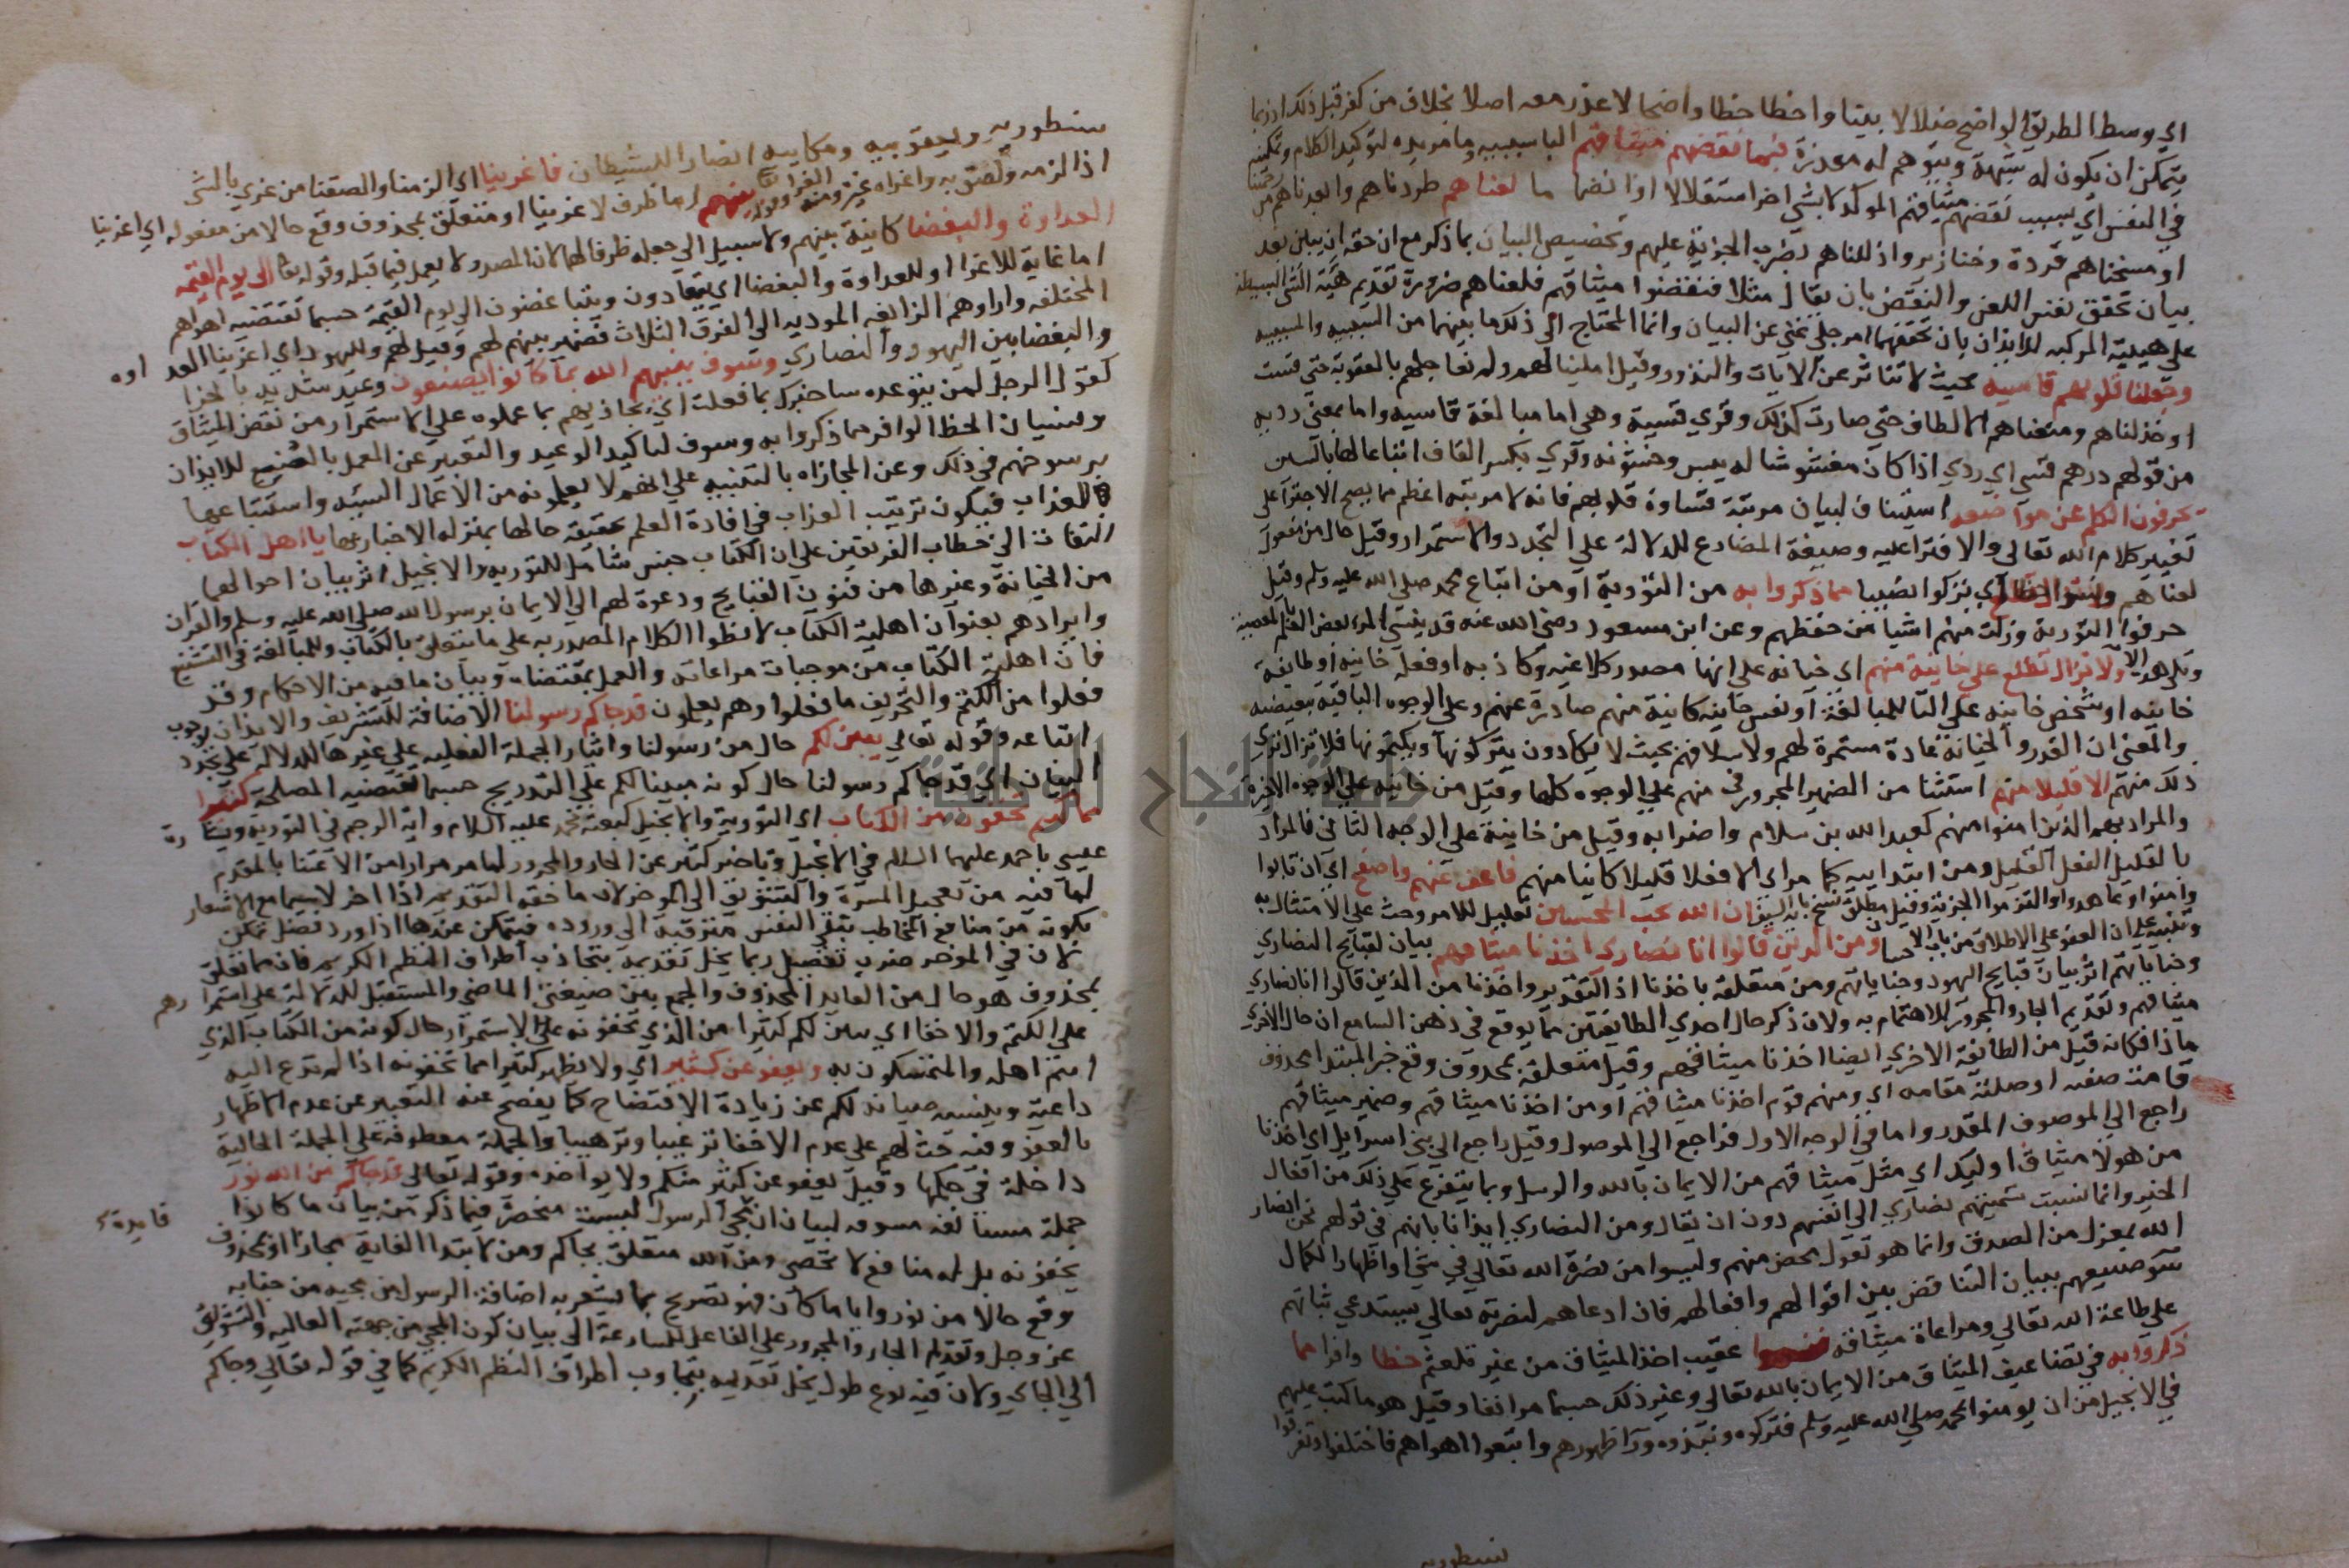 اي وسط الطريق الواضح ضلالا بينا واخطا خطا واضحا لا عذر معه اصلا بخلاف من كفر قبل ذلك اذ ربما
يتمكن ان يكون له شبهة ويتوهم له معذرة فبما نقضهم ميثاقهم الباسببيه وما مزيده لتوكيد الكلام وتمكينه
في النفس اي بسبب نقضهم ميثاقهم الموكد لا بشي اخر استقلالا او انضماما لعناهم طردناهم وابعدناهم من رحمتنا
او مسخناهم قردة وخنازير او اذللناهم بضرب الجزية عليهم وتخصيص البيان بما ذكر مع ان حقه ان يبين بعد
بيان تحقق نفس اللعن والنقض بان يقال مثلا فنقضوا ميثاقهم فلعناهم ضرورة تقديم هيئة الشي البسيطة
على هيئته المركبه للايذان بان تحققهما امر جلي غني عن البيان وانما المحتاج الى ذلك ما بينهما من السببيه والمسببيه
وجعلنا قلوبهم قاسيه بحيث لا تتاثر عن الايات والنذور وقيل املينا لهم ولم نعاجلهم بالعقوبة حتى قست
او خذلناهم ومنعناهم الالطاف حتى صارت كذلك وقري قسية وهي اما مبالغة قاسيه واما بمعنى رديه
من قولهم درهم قسي اي ردي اذا كان مغشوشا له يبس وخشونه وقري بكسر القاف اتباعا لها بالسين
يحرفون الكلم عن مواضعه استيناف لبيان مرتبة قساوة قلوبهم فانه لا مرتبه اعظم مما يصحح الاجترا على
تغيير كلام الله تعالى والافترا عليه وصيغة المضارع للدلالة على التجدد والاستمرار وقيل حال من مفعول
لعناهم ونسوا حظا اي تركوا نصيبا مما ذكروا به من التورية او من اتباع محمد صلى الله عليه وسلم وقيل
حرفوا التورية وزلت منهم اشيا من حفظهم وعن ابن مسعود رضى الله عنه قد ينسى المرء بعض العلم بالمعصية
وتلى هذه الاية ولا تزال تطلع على خاينة منهم اي خيانه على انها مصدر كلاغيه وكاذبه او فعله خاينه او طائفة
خاينه او شخص خاينه على التا للمبالغة او نفس خاينه كاينة منهم صادرة عنهم وعلى الوجوه الباقية تبعيضيه
والمعنى ان الغدر والخيانة عادة مستمرة لهم ولاسلافهم بحيث لا يكادون يتركونها ويكتمونها فلا تزال ترى
ذلك منهم الا قليلا منهم استثنا من الضمير المجرور في منهم على الوجوه كلها وقيل من خاينة على الوجوه الاخيرة
والمراد بهم الذين امنوا منهم كعبد الله بن سلام واضرابه وقيل من خاينة على الوجه الثاني فالمراد
بالقليل الفعل القليل ومن ابتداييه كما مر اي الا فعلا قليلا كاينا منهم فاعف عنهم واصفح اي ان تابوا
وامنوا او عاهدوا والتزموا الجزية وقيل مطلق نسخ باية السيف ان الله يحب المحسنين تعليل للامر وحث على الامتثال به
وتنبيه على ان العفو على الاطلاق من باب الاحسان ومن الذين قالوا انا نصارى اخذنا ميثاقهم بيان لقبايح النصارى
وجناياتهم اثر بيان قبايح اليهود وجناياتهم ومن متعلقة باخذنا اذ التقدير واخذنا من الذين قالوا انا نصارى
ميثاقهم وتقديم الجار والمجرور للاهتمام به ولان ذكر حال احدى الطايفتين مما يوقع في ذهن السامع ان حال الاخرى
ماذا فكانه قيل من الطائفة الاخرى ايضا اخذنا ميثاقهم وقيل متعلقة بمحذوف وقع خبر المبتدا محذوف
قامت صفته او صلته مقامه اي ومنهم قوم اخذنا ميثاقهم او من اخذنا ميثاقهم وضمير ميثاقهم
راجع الى الموصوف المقدر واما في الوجه الاول فراجع الى الموصول وقيل راجع الى بني اسرايل اي اخذنا
من هولا ميثاق اوليك اي مثل ميثاقهم من الايمان بالله والرسل وبما يتفرع على ذلك من افعال
الخير وانما نسبت تسميتهم نصارى الى انفسهم دون ان يقال ومن النصارى ايذانا بانهم في قولهم نحن انصار
الله بمعزل من الصدق وانما هو تقول محض منهم وليسوا من نصرة الله تعالى في شي او اظهارا لكمال
سو صنيعهم ببيان التناقض بين اقوالهم وافعالهم فان ادعاهم لنصرته تعالى يستدعي ثباتهم
على طاعة الله تعالى ومراعاة ميثاقه فنسوا عقيب اخذ الميثاق من غير تلعثم حظا وافرا مما
ذكروا به في تضاعيف الميثاق من الايمان بالله تعالى وغير ذلك حسبما مر انفا وقيل هو ما كتب عليهم
في الانجيل من ان يومنوا بمحمد صلى الله عليه وسلم فتركوه ونبذوه ورا ظهورهم واتبعوا اهواهم فاختلفوا وتفرقوا
نسطوريه
نسطوريه ويعقوبيه وملكانيه انصارا للشيطان فاغرينا اي الزمنا والصقنا من غري بالشى
اذا لزمه ولصق به واغراه غيره ومنه الغرا وقوله بينهم اما ظرف لاغرينا او متعلق بمحذوف وقع حالا من مفعوله اي اغرينا
العداوة والبغضا كاينة بينهم ولا سبيل الى جعله ظرفا لهما لان المصدر لا يعمل فيما قبله وقوله تعالى الى يوم القيمه
اما غاية للاغرا او للعداوة والبغضا اي يتعادون ويتباغضون الى يوم القيمة حسبما تقتضيه اهواهم
المختلفه واراوهم الزائفه الموديه الى الفرق الثلاث فضمير بينهم لهم وقيل لهم ولليهود اي اغرينا العداوه
والبغضا بين اليهود والنصارى وسوف ينبيهم الله بما كانوا يصنعون وعيد شديد بالجزا
كقول الرجل لمن يتوعده ساخبرك بما فعلت اي يجازيهم بما عملوه على الاستمرار من نقض الميثاق
ونسيان الحظ الوافر مما ذكروا به وسوف لتاكيد الوعيد والتعبير عن العمل بالصنع للايذان
برسوخهم في ذلك وعن المجازاه بالتنبيه على انهم لا يعلمونه من الاعمال السيئه واستتباعها
للعذاب فيكون ترتيب العذاب في افادة العلم بحقيقة حالها بمنزله الاخبار بها يا اهل الكتاب
التفات الى خطاب الفريقين على ان الكتاب جنس شامل للتوريه والانجيل اثر بيان احوالهما
من الخيانة وغيرها من فنون القبايح ودعوة لهم الى الايمان برسول الله صلى الله عليه وسلم والقران
وايرادهم بعنوان اهلية الكتاب لانطوا الكلام المصدر به على ما يتعلق بالكتاب وللمبالغة في التشنيع
فان اهلية الكتاب من موجبات مراعاته والعمل بمقتضاه وبيان ما فيه من الاحكام وقد
فعلوا من الكتم والتحريف ما فعلوا وهم يعلمون قد جاكم رسولنا الاضافة للتشريف والايذان بوجوب
اتباعه وقوله تعالى يبين لكم حال من رسولنا وايثار الجملة الفعليه على غيرها للدلالة على تجدد
البيان اي قد جاكم رسولنا حال كونه مبينا لكم على التدريج حسبما تقتضيه المصلحة كثيرا
مما كنتم تخفون من الكتاب اي التورية والانجيل كبعثة محمد عليه السلام واية الرجم في التورية وبشارة
عيسى باحمد عليهما السلام في الانجيل وتاخير كثير عن الجار والمجرور لما مر مرارا من الاعتنا بالمقدم
لما فيه من تعجيل المسرة والتشويق الى الموخر لان ما حقه التقديم اذا اخر لاسيما مع الاشعار
بكونه من منافع المخاطب تبقى النفس مترقبة الى وروده فيتمكن عندها اذا ورد فضل تمكن
لان في الموخر ضرب تفصيل ربما يخل تقديمه بتجاذب اطراف النظم الكريم فان مما تعلق
بمحذوف هو حال من العايد المحذوف والجمع بين صيغتي الماضى والمستقبل للدلالة على استمرارهم
على الكتم والاخفا اي يبين لكم كثيرا من الذي تخفونه على الاستمرار حال كونه من الكتاب الذي
انتم اهله والمتمسكون به ويعفو عن كثير اي ولا يظهر كثيرا مما تخفونه اذا لم تدع اليه
داعية دينيه صيانة لكم عن زيادة الافتضاح كما يفصح عنه التعبير عن عدم الاظهار
بالعفو وفيه حث لهم على عدم الاخفا ترغيبا وترهيبا والجملة معطوفة على الجملة الحالية
داخلة في حكمها وقيل يعفو عن كثير منكم ولا يواخذه وقوله تعالى قد جاكم من الله نور
جملة مستانفه مسوقه لبيان ان مجي الرسول ليست منحصرة فيما ذكر من بيان ما كانوا
فايدة
يخفونه بل له منافع لا تحصى ومن الله متعلق بجاكم ومن لابتدا الغاية مجازا او بمحذوف
وقع حالا من نور وايا ما كان فهو تصريح بما يشعر به اضافة الرسول من مجيه من جنابه
عز وجل وتقديم الجار والمجرور على الفاعل للمسارعة الى بيان كون المجي من جهته العاليه والتشويق
الى الجاي ولان فيه نوع طول يخل تقديمه بتجاوب اطراف النظم الكريم كما في قوله تعالى وجاكم
جامعة النجاح الوطنية